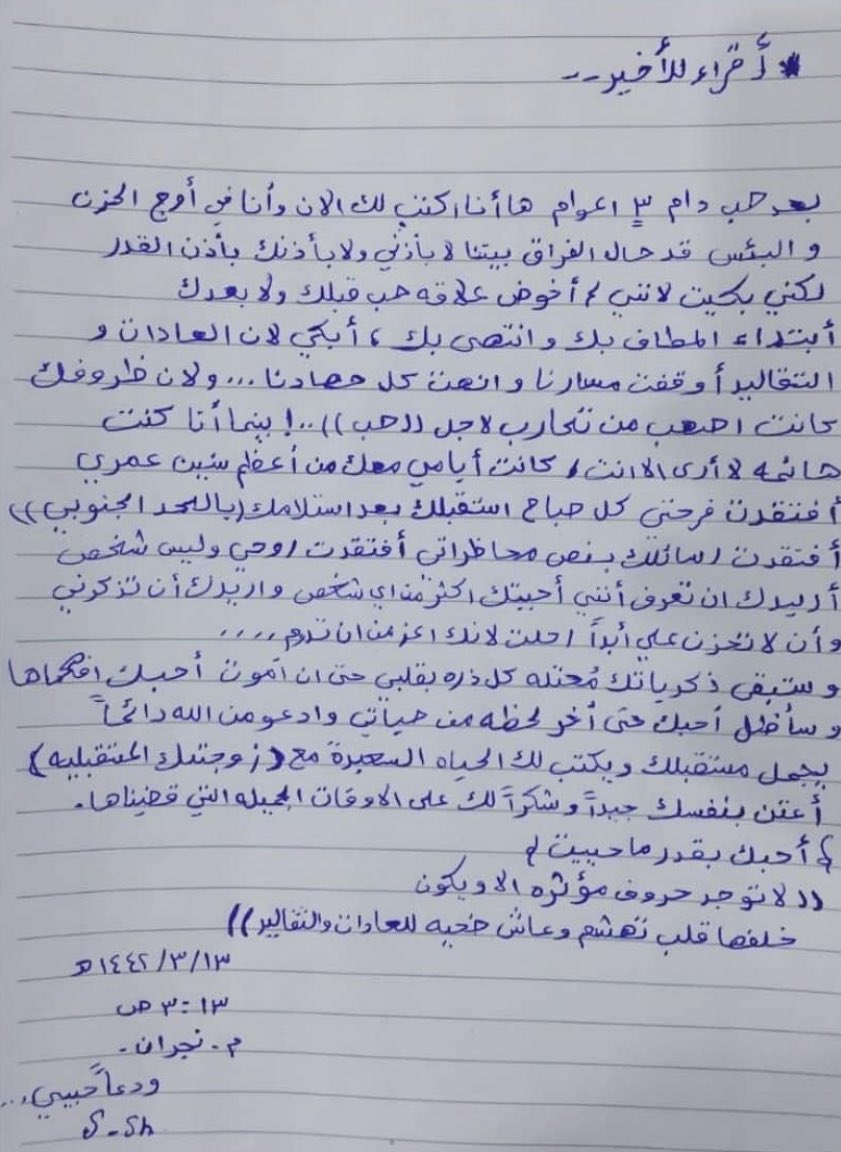 * أقراء للأخير--
بعد حب دام ٣ اعوام ها أنا اكتب لك الان وأنا في أوج الحزن
و البئس قد حال الفراق بيننا لا بأذني ولا بأذنك بأذن القدر
لكني بكيت لانني لم أخوض علاقه حب قبلك ولا بعدك
أبتداء المطاف بك و انتهى بك ، أبكي لان العادات و
التقاليد أوقفت مسارنا و انهت كل حصادنا ... ولان ظروفك
كانت اصعب من تحارب لاجل ((حب))..! بينما أنا كنت
هائمه لا أرى الا انت ، كانت أيامي معك من أعظم سنين عمري
أفتقدت فرحتي كل صباح استقبلك بعد استلامك (بالحد الجنوبي))
أفتقدت رسائلك بنص محاظراتي أفتقدت روحي وليس شخص
أريدك ان تعرف أنني أحببتك اكثر من اي شخص واريدك أن تذكرني
وأن لا تحزن علي أبداً رحلت لانك اعز من ان تدم ....
وستبقى ذكرياتك مُحتله كل ذره بقلبي حتى ان أموت أحبك افهماها
و سأظل أحبك حتى أخر لحظه من حياتي وادعو من الله دائماً
يجمل مستقبلك ويكتب لك الحياه السعيدة مع (زوجتك المستقبليه)
أعتن بنفسك جيداً وشكراً لك على الاوقات الجميله التي قضيناها.
{ أحبك بقدر ما حييت }
(( لا توجد حروف مؤثره الا ويكون
خلفها قلب تهشم وعاش ضحيه للعادات والتقاليد))
١٤٤٢/٣/١٣ هـ
٣:١٣ ص
م - نجران -
ودعاً حبيبي ،...
S - Sh